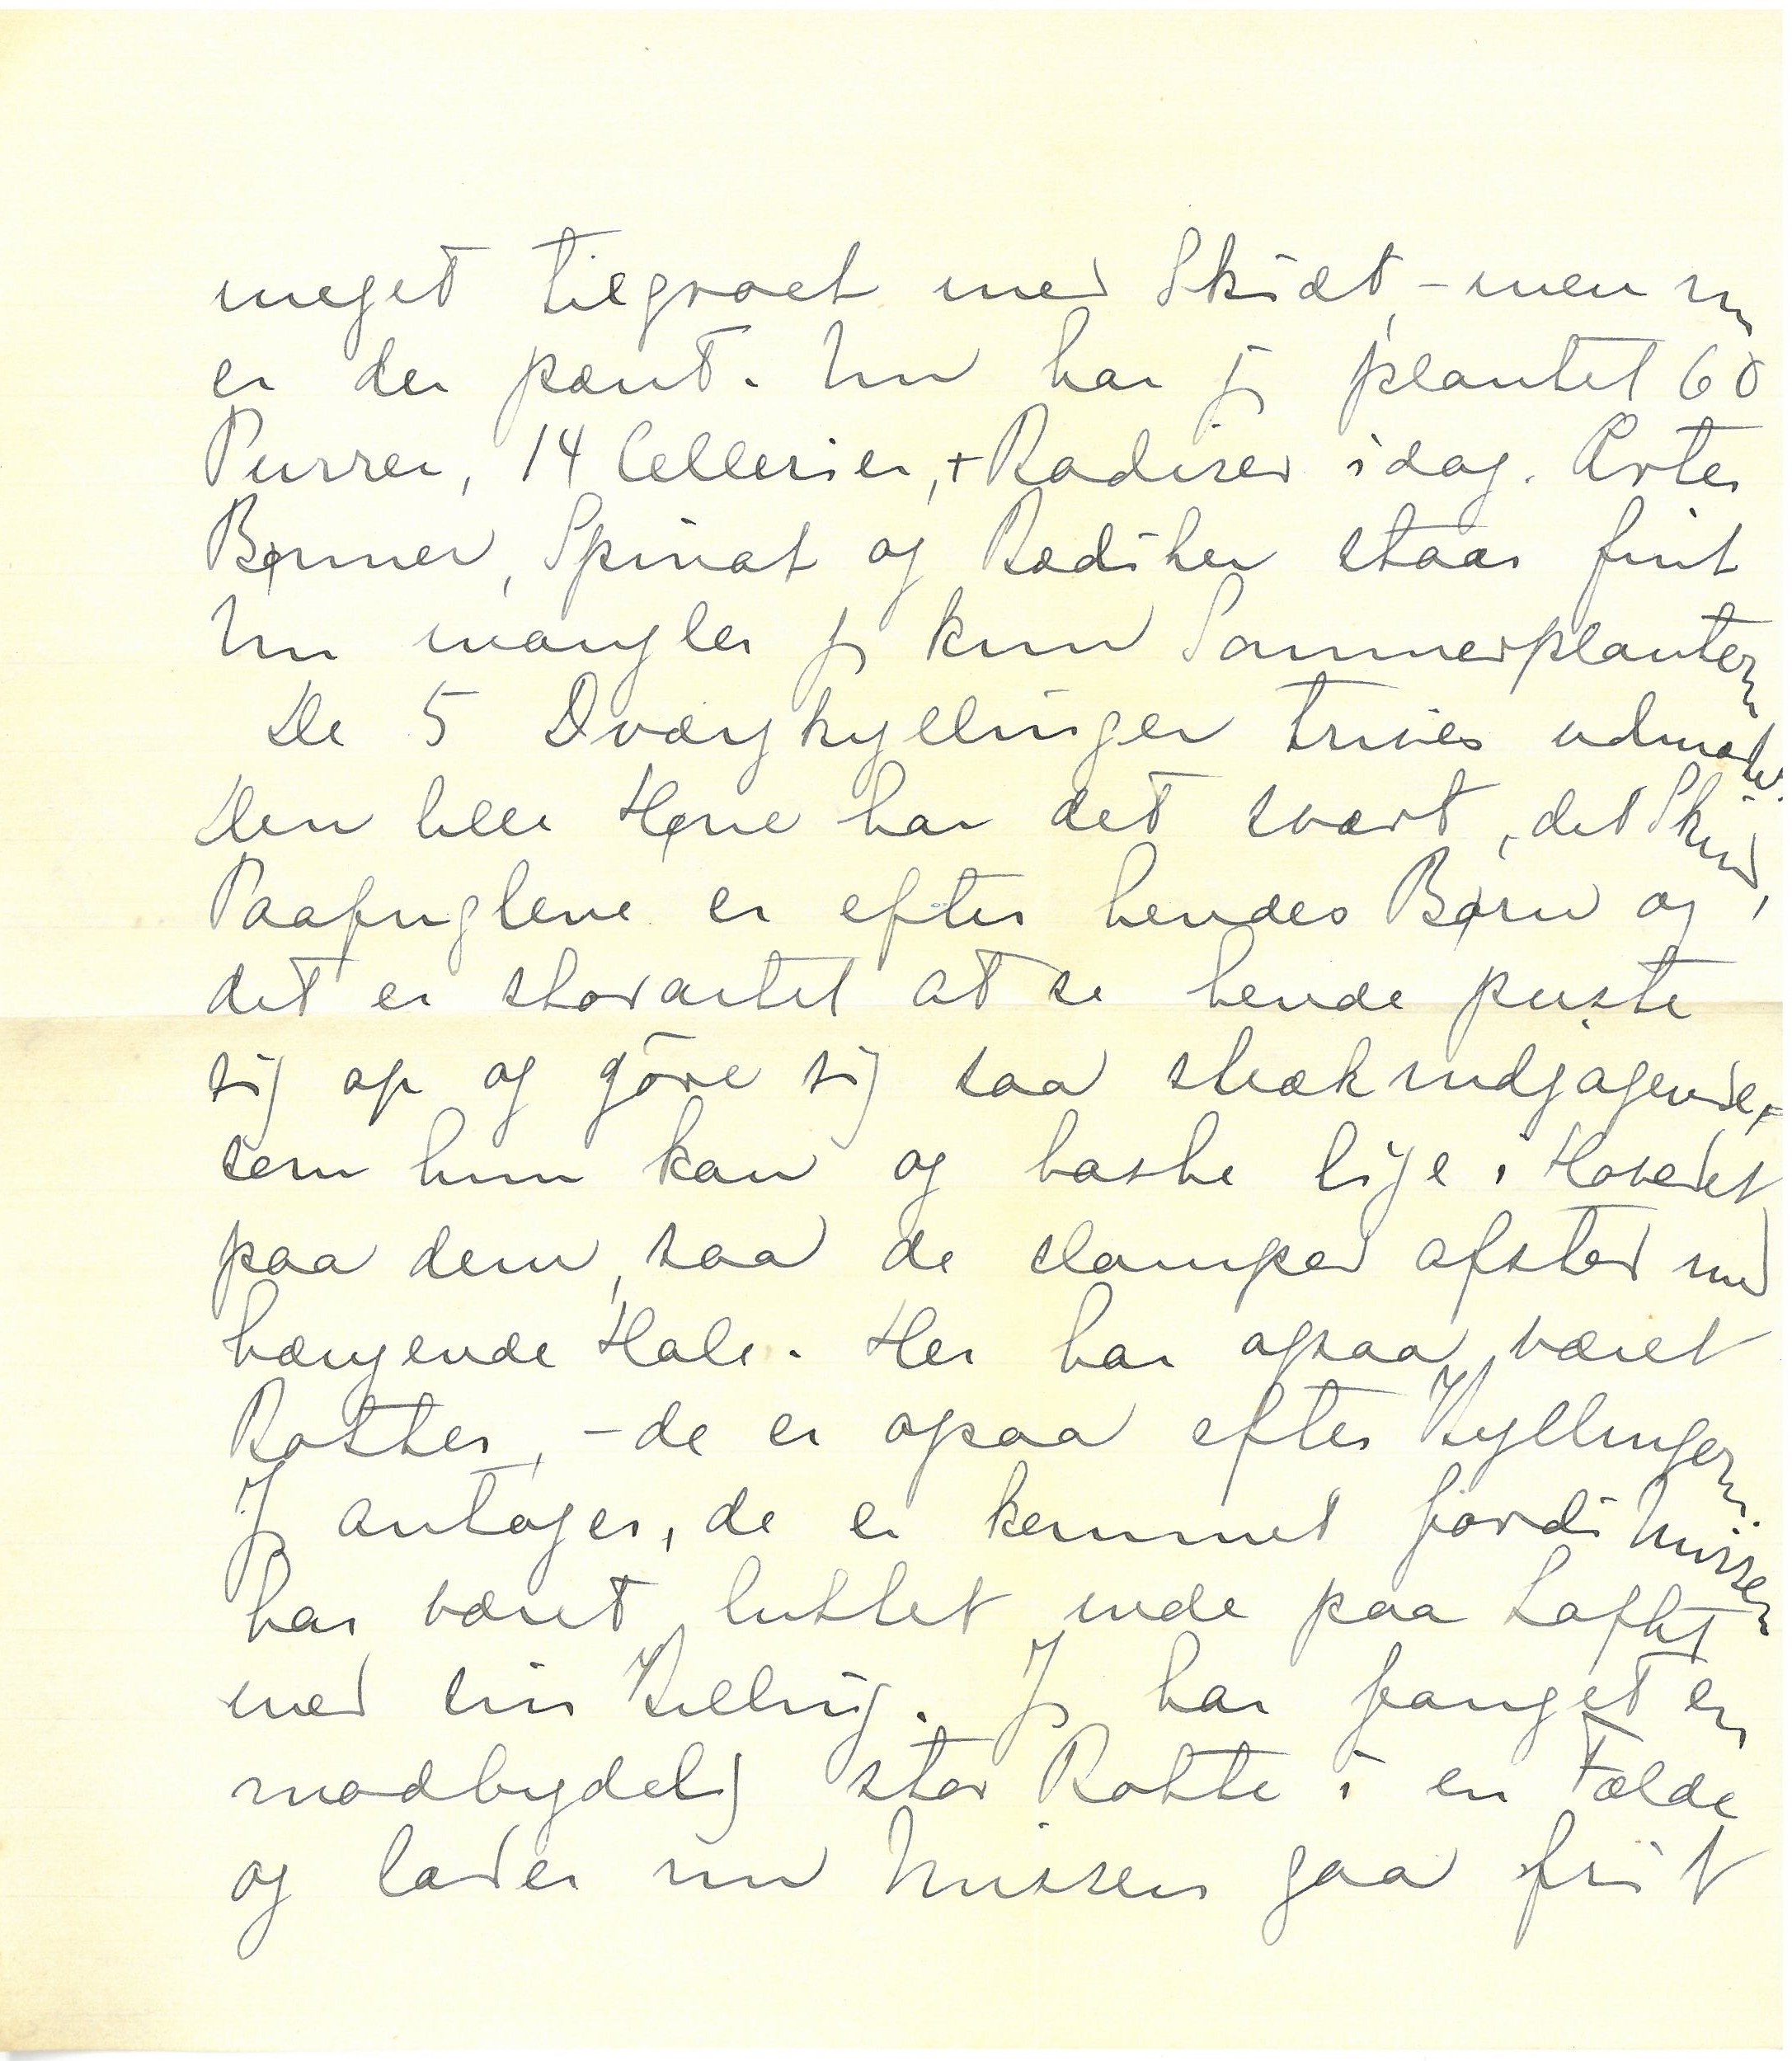 meget tilgroet med Skidt, - men nu
er der pænt. Nu har jeg plantet 60
Purrer, 14 Cellerier, + Radiser idag. Ærter
Bønner, Spinat og Rædiker staar fint
Nu mangler jeg kun Sommerplanter
De 5 Dværgkyllinger trives udmærket.
Den lille Høne har det svært, det Skind,
Paafuglene er efter hendes Børn og
det er storartet at se hende puste
sig op og göre sig saa skrækindjagende,
som hun kan og baske lige i Hovedet
paa dem, saa de slamper afsted med
hængende Hale. Her har ogsaa været
Rotter, - de er ogsaa efter Kyllingerne.
Jeg antager, de er kommet fordi Nussen
har været lukket inde paa Loftet
med sin Killing. Jeg har fanget en
modbydelig stor Rotte i en Fælde
og lader nu Nussen gaa frit